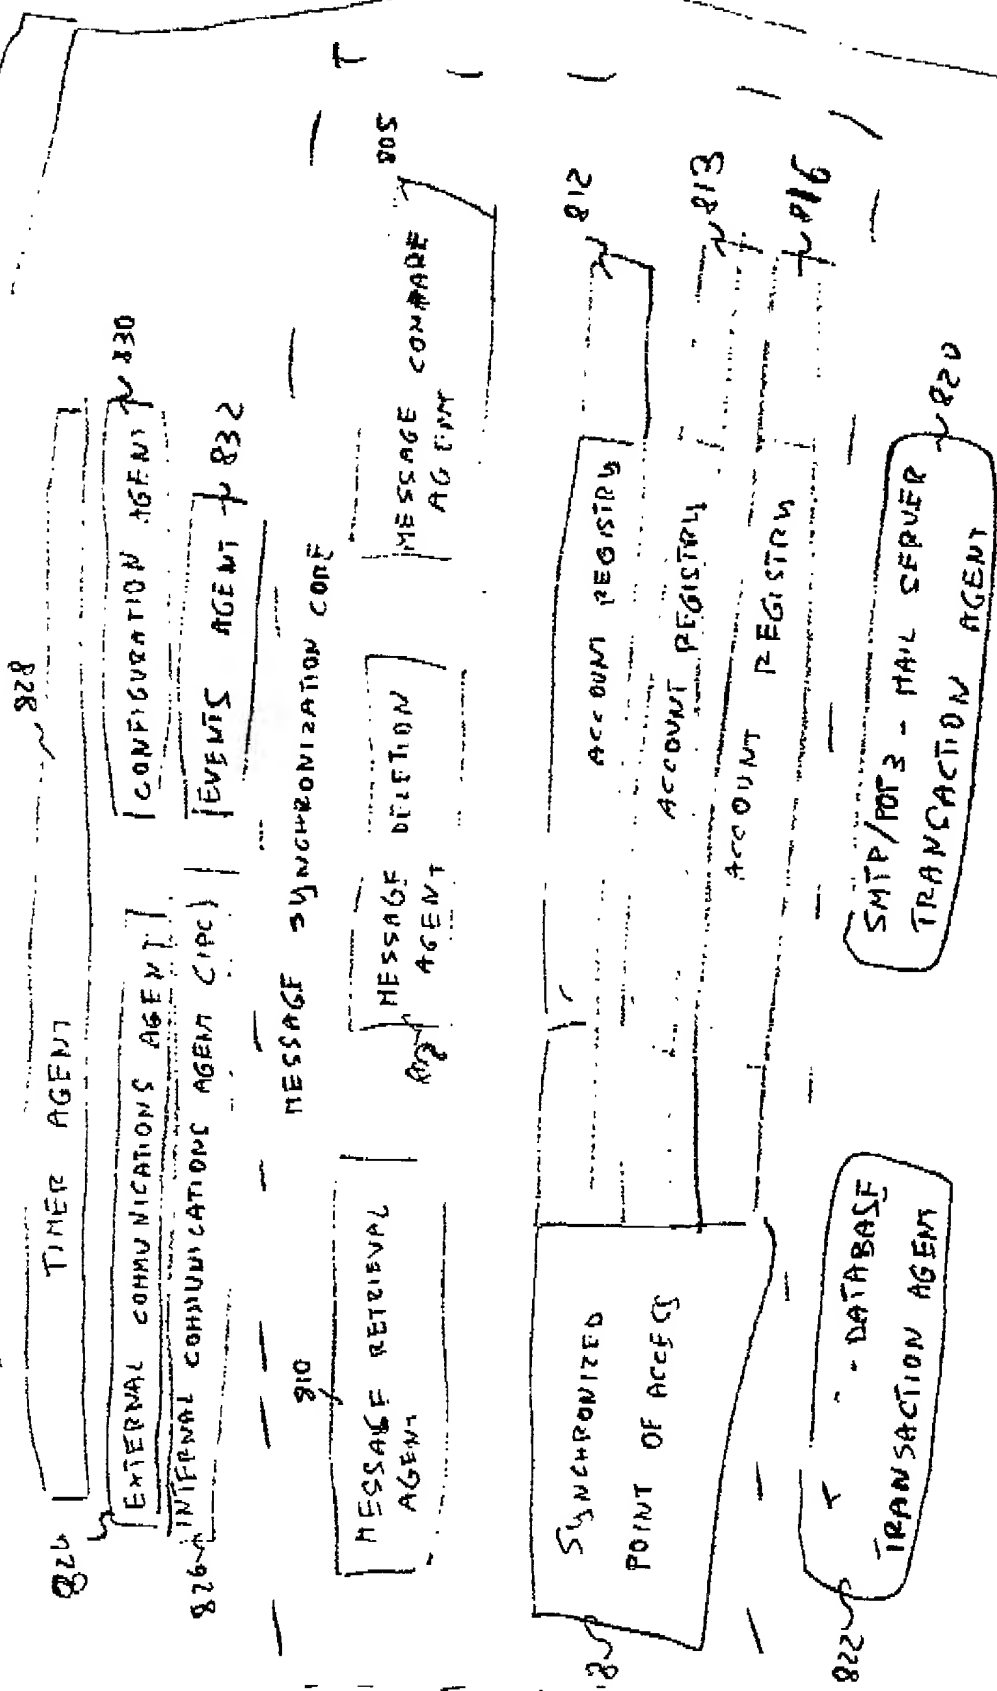 828
TIMER AGENT
824
EXTERNAL COMMUNICATIONS AGENT
CONFIGURATION AGENT
830
826
INTERNAL COMMUNICATIONS AGENT (IPC)
EVENTS AGENT
832
MESSAGE SYNCHRONIZATION CORE
810
MESSAGE RETRIEVAL
AGENT
MESSAGE DELETION
AGENT
MESSAGE COMPARE
AGENT
805
SYNCHRONIZED
POINT OF ACCESS
ACCOUNT REGISTRY
812
ACCOUNT REGISTRY
813
ACCOUNT REGISTRY
816
822
DATABASE
TRANSACTION AGENT
SMTP/POP3 - MAIL SERVER
TRANSACTION AGENT
820